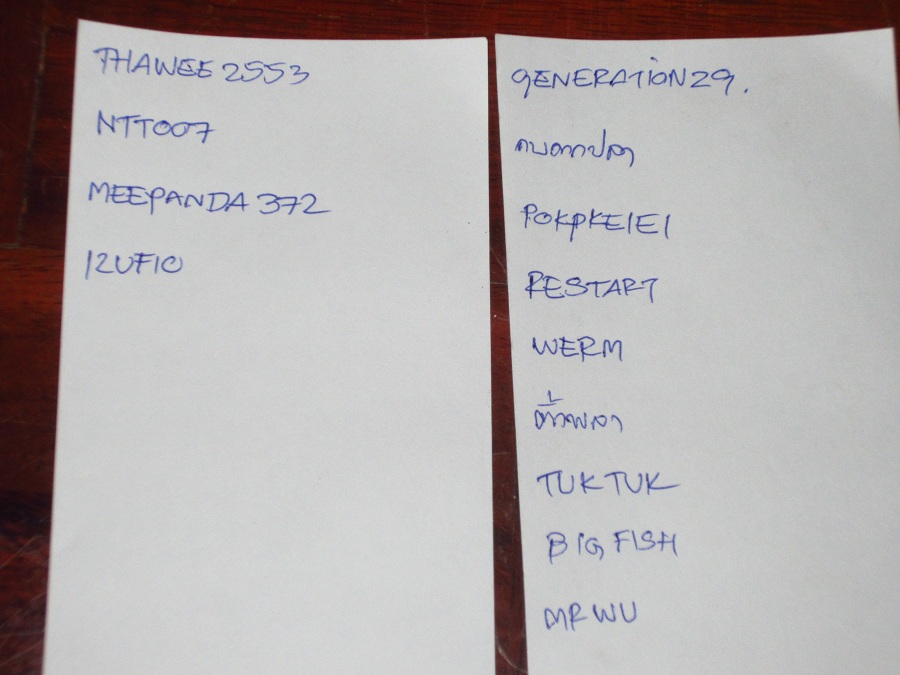 THAWEE 2553
NTT007
MEEPANDA 372
12UF10
GENERATION29.
คนตกปลา
POKPKEIEI
RESTART
WERM
TUK TUK
BIG FISH
MR WU